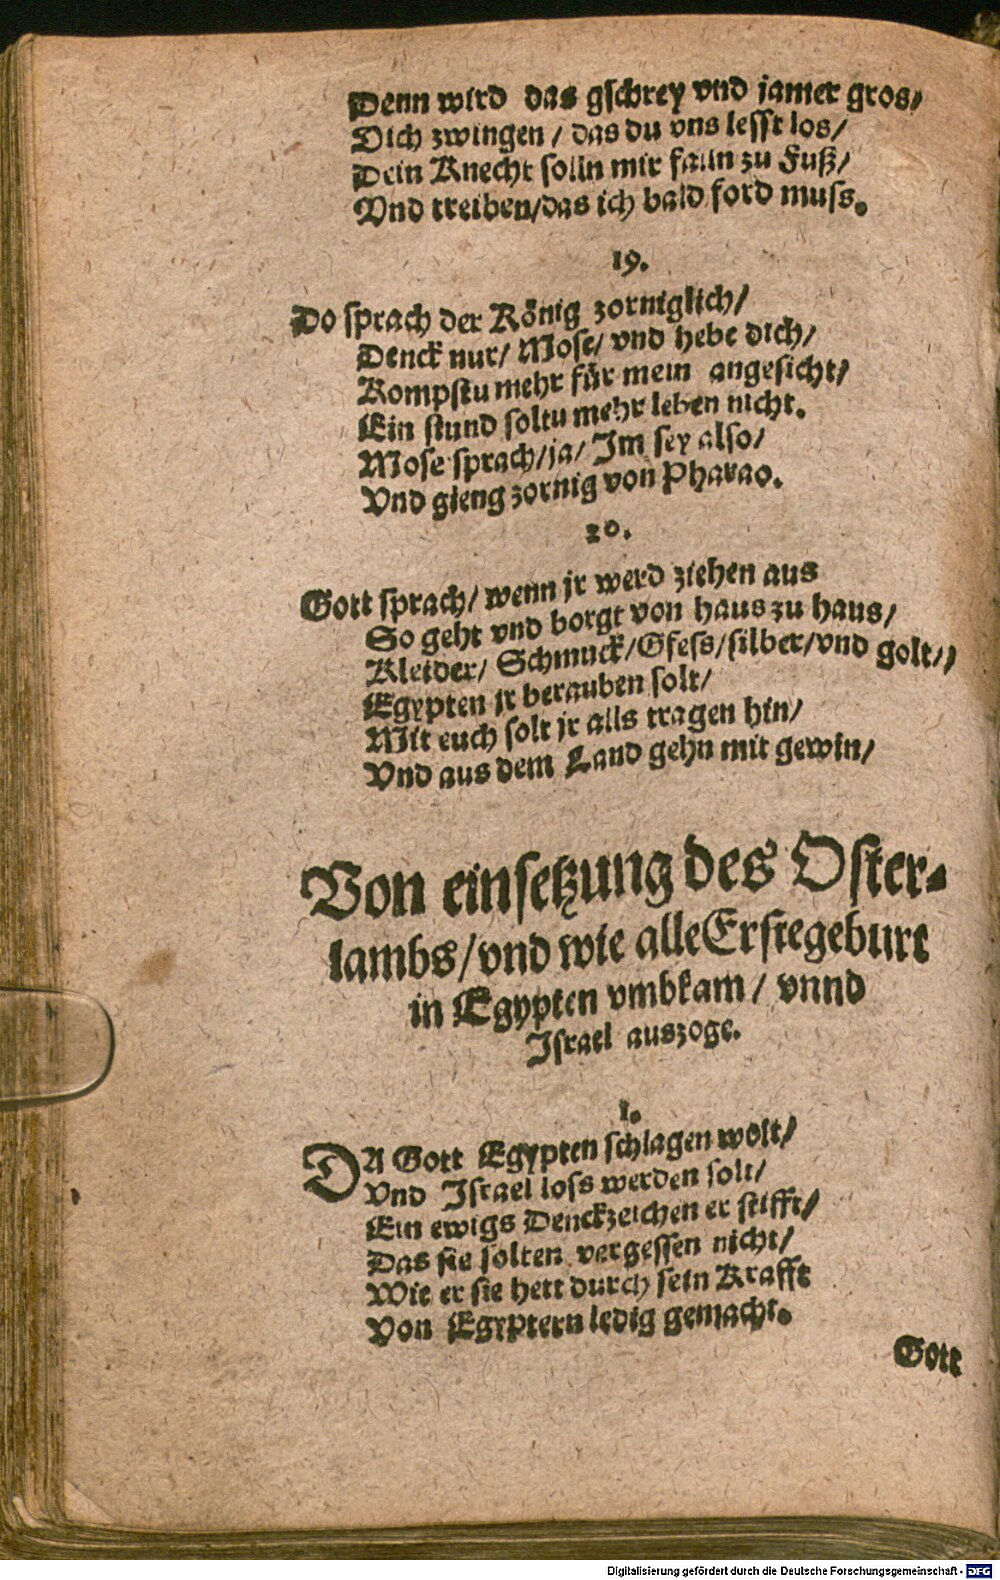 Denn wird das gschrey vnd jamer gros/
Dich zwingen / das du vns lesst los/
Dein Knecht solln mir falln zu Fuß/
Vnd treiben/das ich bald ford muss.
19.
Do sprach der König zorniglich/
Denck nur/ Mose/ vnd hebe dich/
Kompstu mehr für mein angesicht/
Ein stund soltu mehr leben nicht.
Mose sprach/ja/ Im sey also/
Vnd gieng zornig von Pharao.
20.
Gott sprach/ wenn jr werd ziehen aus
So geht vnd borgt von haus zu haus/
Kleider/ Schmuck/Gfess/silber/vnd golt//
Egypten jr berauben solt/
Mit euch solt jr alls tragen hin/
Vnd aus dem Land gehn mit gewin/
Von einsetzung des Oster-
lambs/vnd wie alle Erstegeburt
in Egypten vmbkam/ vnnd
Israel auszoge.
1.
DA Gott Egypten schlagen wolt/
Vnd Israel loss werden solt/
Ein ewigs Denckzeichen er stifft/
Das sie solten vergessen nicht/
Wie er sie hett durch sein Krafft
Von Egyptern ledig gemacht.
Gott
Digitalisierung gefördert durch die Deutsche Forschungsgemeinschaft - DFG